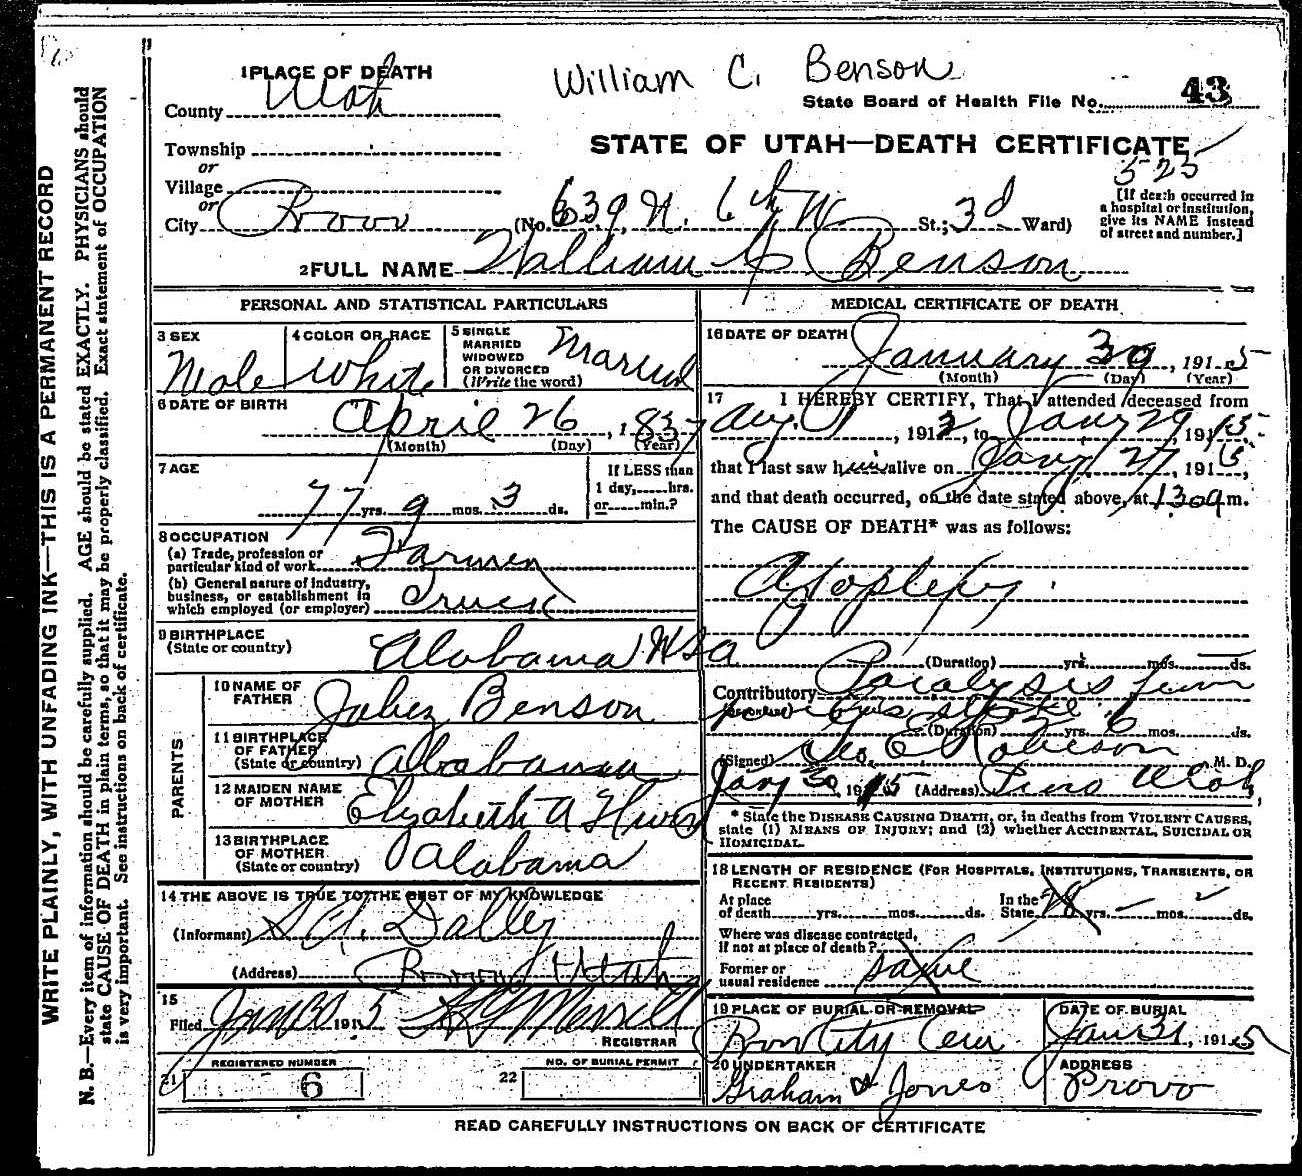 William C. Benson
1 PLACE OF DEATH
County Utah
State Board of Health File No. 43
Township
or
Village
or
City Provo
STATE OF UTAH—DEATH CERTIFICATE
525
(No. 639 N. 6th W St.; 3d Ward)
[If death occurred in
a hospital or institution,
give its NAME instead
of street and number.]
2 FULL NAME William C Benson
PERSONAL AND STATISTICAL PARTICULARS
3 SEX
Male
4 COLOR OR RACE
White
5 SINGLE
MARRIED
WIDOWED
OR DIVORCED
(Write the word)
Married
6 DATE OF BIRTH
April 26, 1837
(Month) (Day) (Year)
7 AGE
77 yrs. 9 mos. 3 ds.
If LESS than
1 day, hrs.
or min.?
8 OCCUPATION
(a) Trade, profession or
particular kind of work Farmer
(b) General nature of industry,
business, or establishment in
which employed (or employer) Truck
9 BIRTHPLACE
(State or country) Alabama USA
PARENTS
10 NAME OF
FATHER Jabez Benson
11 BIRTHPLACE
OF FATHER
(State or country) Alabama
12 MAIDEN NAME
OF MOTHER Elizabeth A
13 BIRTHPLACE
OF MOTHER
(State or country) Alabama
14 THE ABOVE IS TRUE TO THE BEST OF MY KNOWLEDGE
(Informant) Dalley
(Address) Provo Utah
15
Filed Jan 30 1915 Merrill
REGISTRAR
REGISTERED NUMBER
21 6
NO. OF BURIAL PERMIT
22
MEDICAL CERTIFICATE OF DEATH
16 DATE OF DEATH
January 29, 1915
(Month) (Day) (Year)
17 I HEREBY CERTIFY, That I attended deceased from
Aug. 1, 1912, to Jany 29 1915
that I last saw him alive on Jany 27, 1915,
and that death occurred, on the date stated above, at 130 a m.
The CAUSE OF DEATH* was as follows:
Apoplexy.
(Duration) yrs. mos. ds.
Contributory Paralysis from
previous stroke
(Duration) 2 yrs. 6 mos. ds.
(Signed) Geo E Robison M. D.
Jany 30, 1915 (Address) Provo Utah,
* State the DISEASE CAUSING DEATH, or, in deaths from VIOLENT CAUSES,
state (1) MEANS OF INJURY; and (2) whether ACCIDENTAL, SUICIDAL OR
HOMICIDAL.
18 LENGTH OF RESIDENCE (FOR HOSPITALS, INSTITUTIONS, TRANSIENTS, OR
RECENT RESIDENTS)
At place
of death yrs. mos. ds.
In the
State 28 yrs. — mos. ds.
Where was disease contracted,
if not at place of death?
Former or
usual residence same
19 PLACE OF BURIAL OR REMOVAL
Provo City Cem
DATE OF BURIAL
Jan 31, 1915
20 UNDERTAKER
Graham & Jones
ADDRESS
Provo
READ CAREFULLY INSTRUCTIONS ON BACK OF CERTIFICATE
WRITE PLAINLY, WITH UNFADING INK—THIS IS A PERMANENT RECORD
N. B.—Every item of information should be carefully supplied. AGE should be stated EXACTLY. PHYSICIANS should
state CAUSE OF DEATH in plain terms, so that it may be properly classified. Exact statement of OCCUPATION
is very important. See instructions on back of certificate.